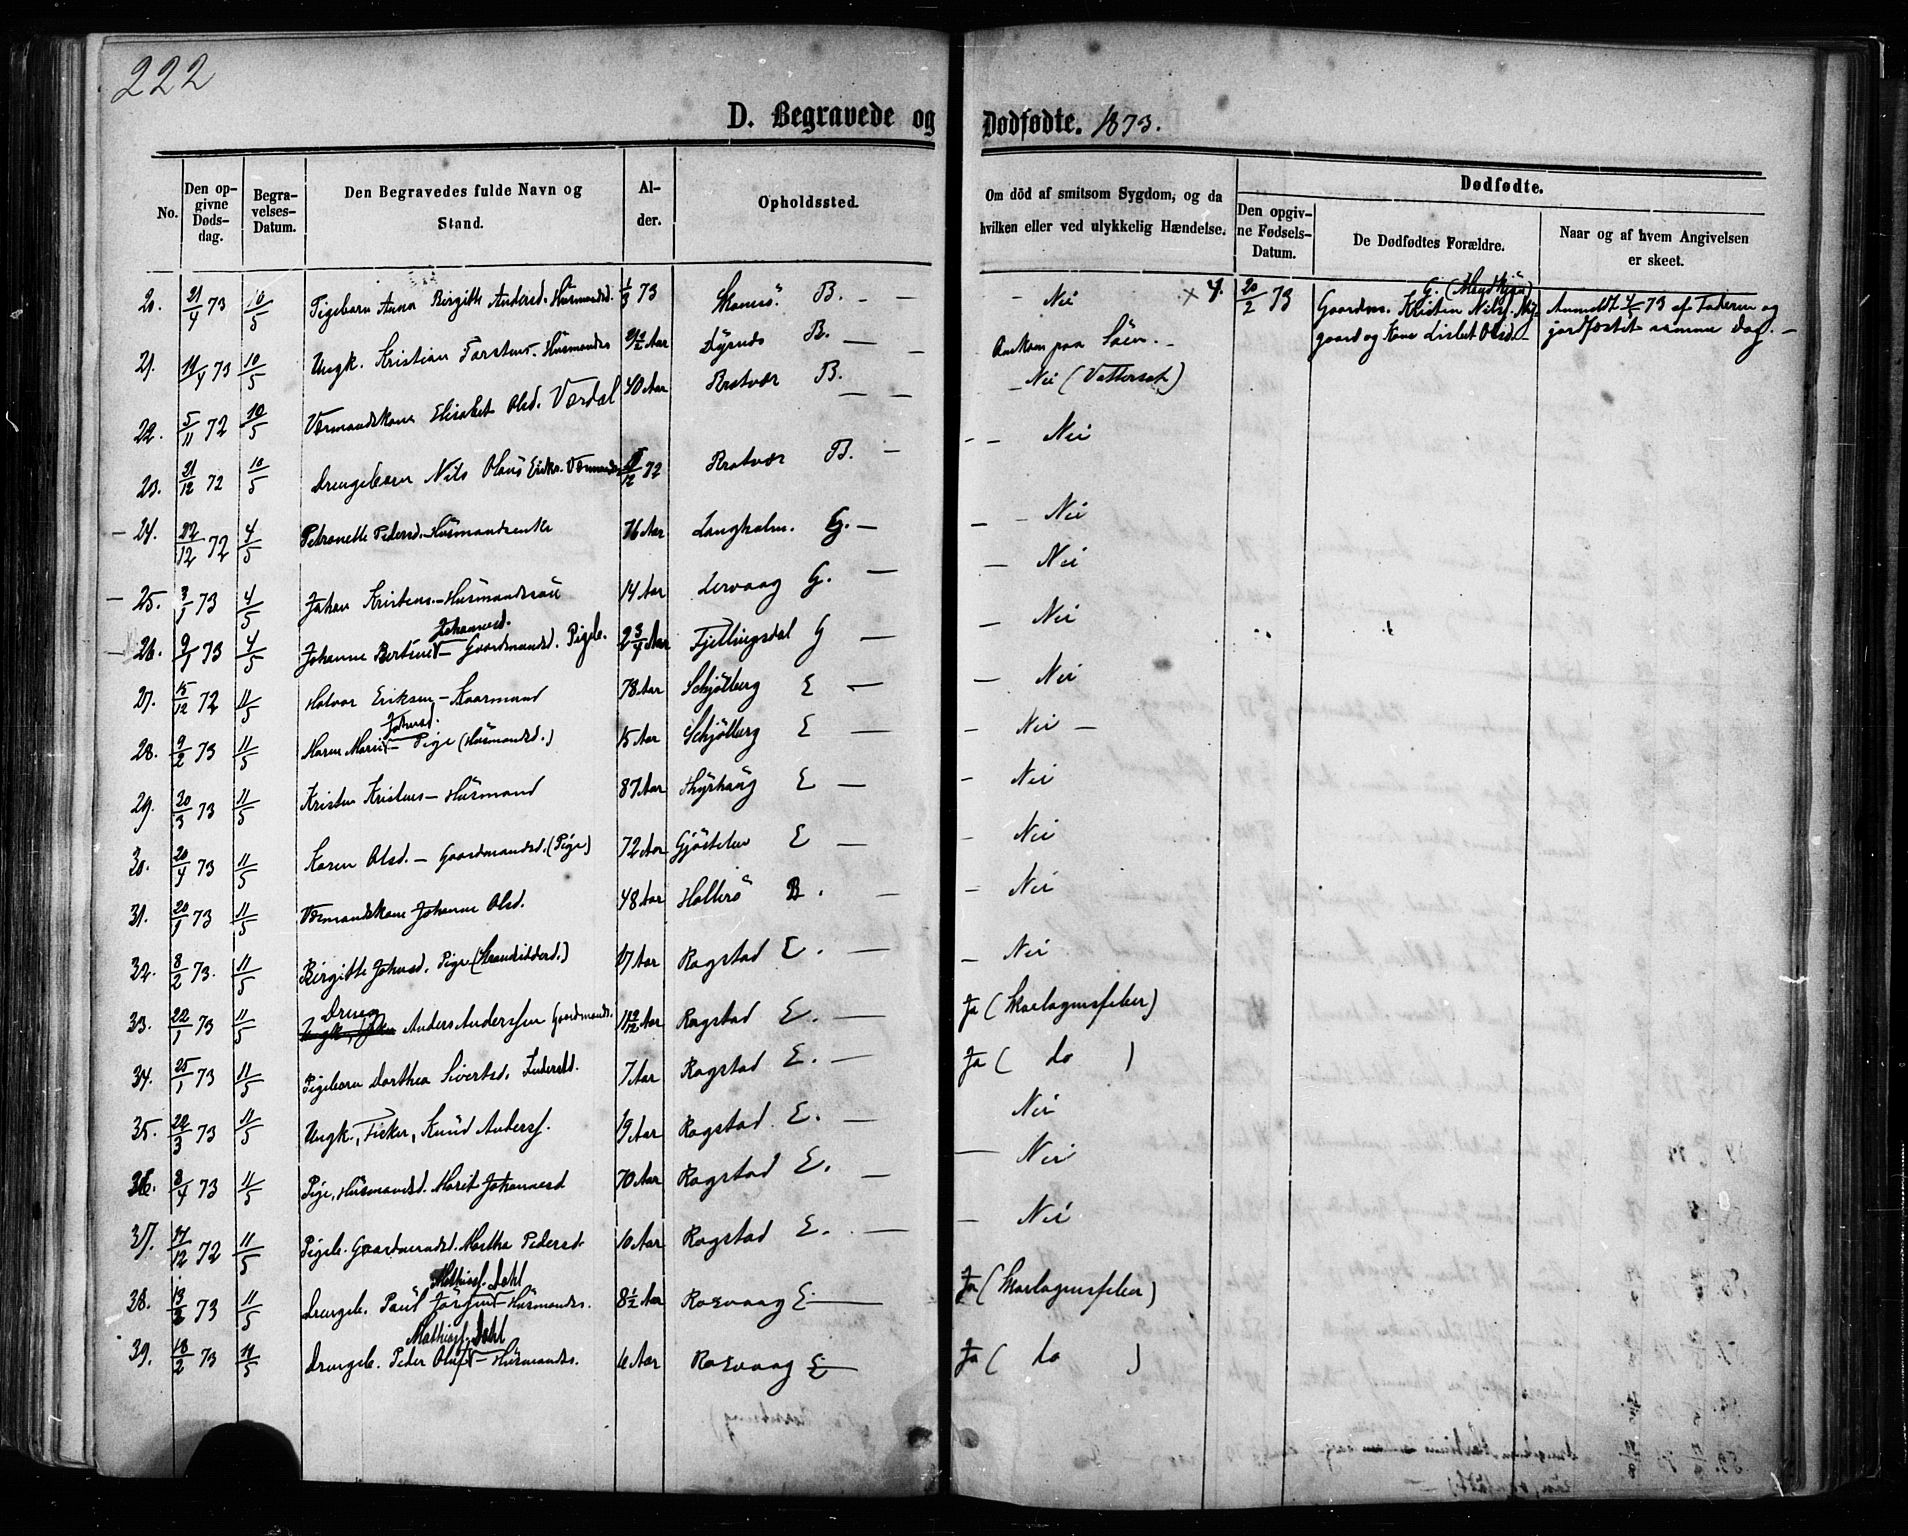 222
D. Begravede og Dødfødte. 1873.
No. Den opgivne Dødsdag. Begravelses-Datum. Den Begravedes fulde Navn og Stand. Alder. Opholdssted. Om död af smitsom Sygdom, og da hvilken eller ved ulykkelig Hændelse. Dødfødte. Den opgivne Fødsels-Datum. De Dødfødtes Forældre. Naar og af hvem Angivelsen er skeet.
20. 21/4 73 10/5 Pigebarn Anna Birgitte Andersd. Husmandsd. 1/3 73 B. — Nei
× 4. 20/2 73 Gaardm. Kristen Nilss. gaard og Kone Lisbet Olsd. Anmeldt 4/5 73 af Faderen og jordfæstet samme Dag. —
21. 19/4 73 10/5 Ungk. Kristian Torstens. Husmands Aar B. — Omkom paa Söen. —
22. 5/11 72 10/5 Værmandskone Elisabet Olsd. Værdal 40 Aar Bratvær B. — Nei (Vattersot)
23. 21/12 72 10/5 Drengebarn Nils Olaus Eriks. 72 Bratvær B. — Nei
24. 22/12 72 4/5 Petronelle Pedersd. — Husmandsenke 76 Aar Langholm. G. — Nei
25. 3/1 73 4/5 Johan Kristens. — Husmandssön 14 Aar Lervaag G. — Nei
26. 9/1 73 4/5 Johanne Bertine Johannesd. — Gaardmandsd. Pigeb. 2 3/4 Aar Fjellingsdal G — Nei
27. 15/12 72 11/5 Halvor Eriksen — Kaarmand 78 Aar Schjölberg E — Nei
28. 9/2 73 11/5 Maren Marie Johnsd. — Pige (Husmandsd.) 15 Aar Schjölberg E — Nei —
29. 20/3 73 11/5 Kristen Kristens — Husmand 87 Aar E — Nei
30. 20/4 73 11/5 Karen Olsd. — Gaardmandsd. (Pige) 72 Aar Gjöstelen E — Nei
31. 20/1 73 11/5 Værmandskone Johanne Olsd. 48 Aar Hallerö B. — Nei
32. 8/2 73. 11/5 Birgitte Johnsd. Pige (Strandsidderd.) 17 Aar Rogstad E. — Nei
33. 22/1 73 11/5 Dreng Anders Anderssen Gaardmands. Aar Rogstad E. — Ja (Skarlagensfeber)
34. 25/1 73 11/5 Pigebarn Dorthea Sivertsd. Inderstd. 7 Aar Rogstad E. — Ja ( do )
35. 22/3 73 11/5 Ungk., Fisker, Knud Anderss. 19 Aar Rogstad. E. — Nei
36. 8/4 73 11/5 Pige, Husmandsd. Marit Johannesd 70 Aar Rogstad E. — Nei
37. 17/12 72 11/5 Pigeb. Gaardmandsd. Martha Pedersd. 10 Aar Rogstad E. — Nei
38. 13/2 73 11/5 Drengeb. Paul Jörgen Mathiass. Dahl — Husmands. 8 1/2 Aar Rosvaag E — Ja (Skarlagensfeber)
39. 18/2 73 11/5 Drengeb. Peder Oluf Mathiass. Dahl — Husmands. 6 Aar Rosvaag E — Ja ( do )